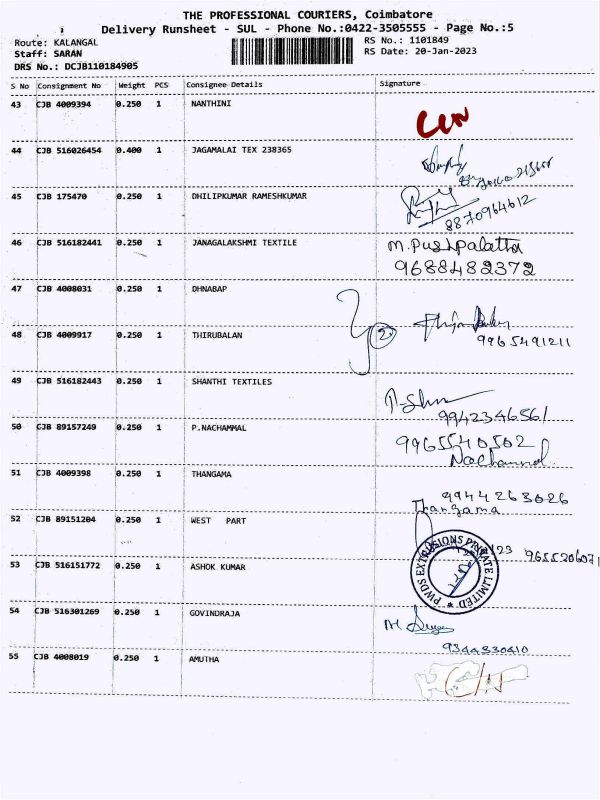 THE PROFESSIONAL COURIERS, Coimbatore
Delivery Runsheet - SUL - Phone No.:0422-3505555 - Page No.:5
Route: KALANGAL RS No.: 1101849
Staff: SARAN RS Date: 20-Jan-2023
DRS No.: DCJB110184905
S No Consignment No Weight PCS Consignee Details Signature
43 CJB 4009394 0.250 1 NANTHINI
44 CJB 516026454 0.400 1 JAGAMALAI TEX 238365
45 CJB 175470 0.250 1 DHILIPKUMAR RAMESHKUMAR
8870964612
46 CJB 516182441 0.250 1 JANAGALAKSHMI TEXTILE M. Pushpalatha
9688482372
47 CJB 4008031 0.250 1 DHNABAP
48 CJB 4009917 0.250 1 THIRUBALAN
9965491211
49 CJB 516182443 0.250 1 SHANTHI TEXTILES
9942346561
50 CJB 89157249 0.250 1 P.NACHAMMAL 9965540502
51 CJB 4009398 0.250 1 THANGAMA 9944263026
Thangama
52 CJB 89151204 0.250 1 WEST PART
PWDS EXTRUSIONS PRIVATE LIMITED
53 CJB 516151772 0.250 1 ASHOK KUMAR
54 CJB 516301269 0.250 1 GOVINDRAJA
9344330410
55 CJB 4008019 0.250 1 AMUTHA